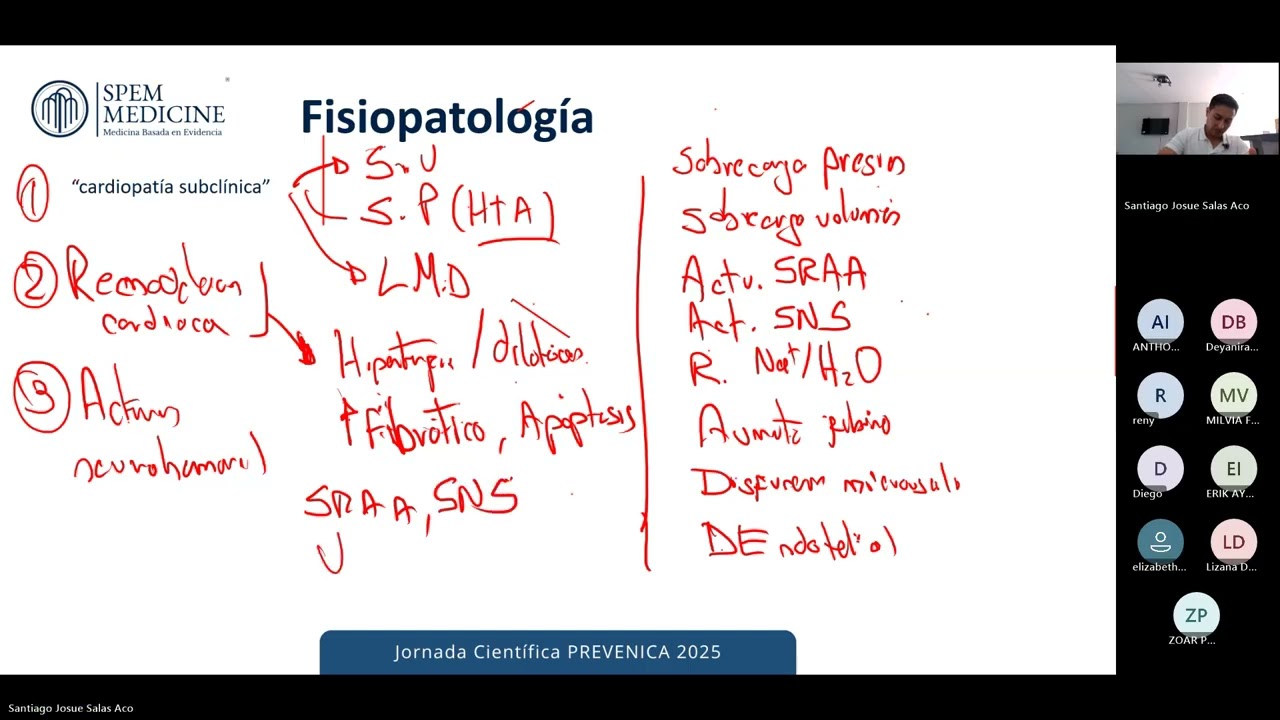 SPEM
MEDICINE
®
Medicina Basada en Evidencia
Fisiopatología
① “cardiopatía subclínica”
S.V
S.P (HTA)
L.M.D
② Remodelación
cardiaca
Hipertrofia / dilatación
↑ Fibrótico, Apoptosis
③ neurohumoral
SRAA, SNS
Sobrecarga presión
Sobrecarga volumen
Actv. SRAA
Act. SNS
R. Na+/H2O
Aumento
Disfunción
DEndotelial
Jornada Científica PREVENICA 2025
Santiago Josue Salas Aco
AI
DB
ANTHO...
Deyanira...
R
MV
reny
MILVIA F...
D
EI
Diego
ERIK AY...
LD
elizabeth...
Lizana D...
ZP
ZOAR P...
Santiago Josue Salas Aco